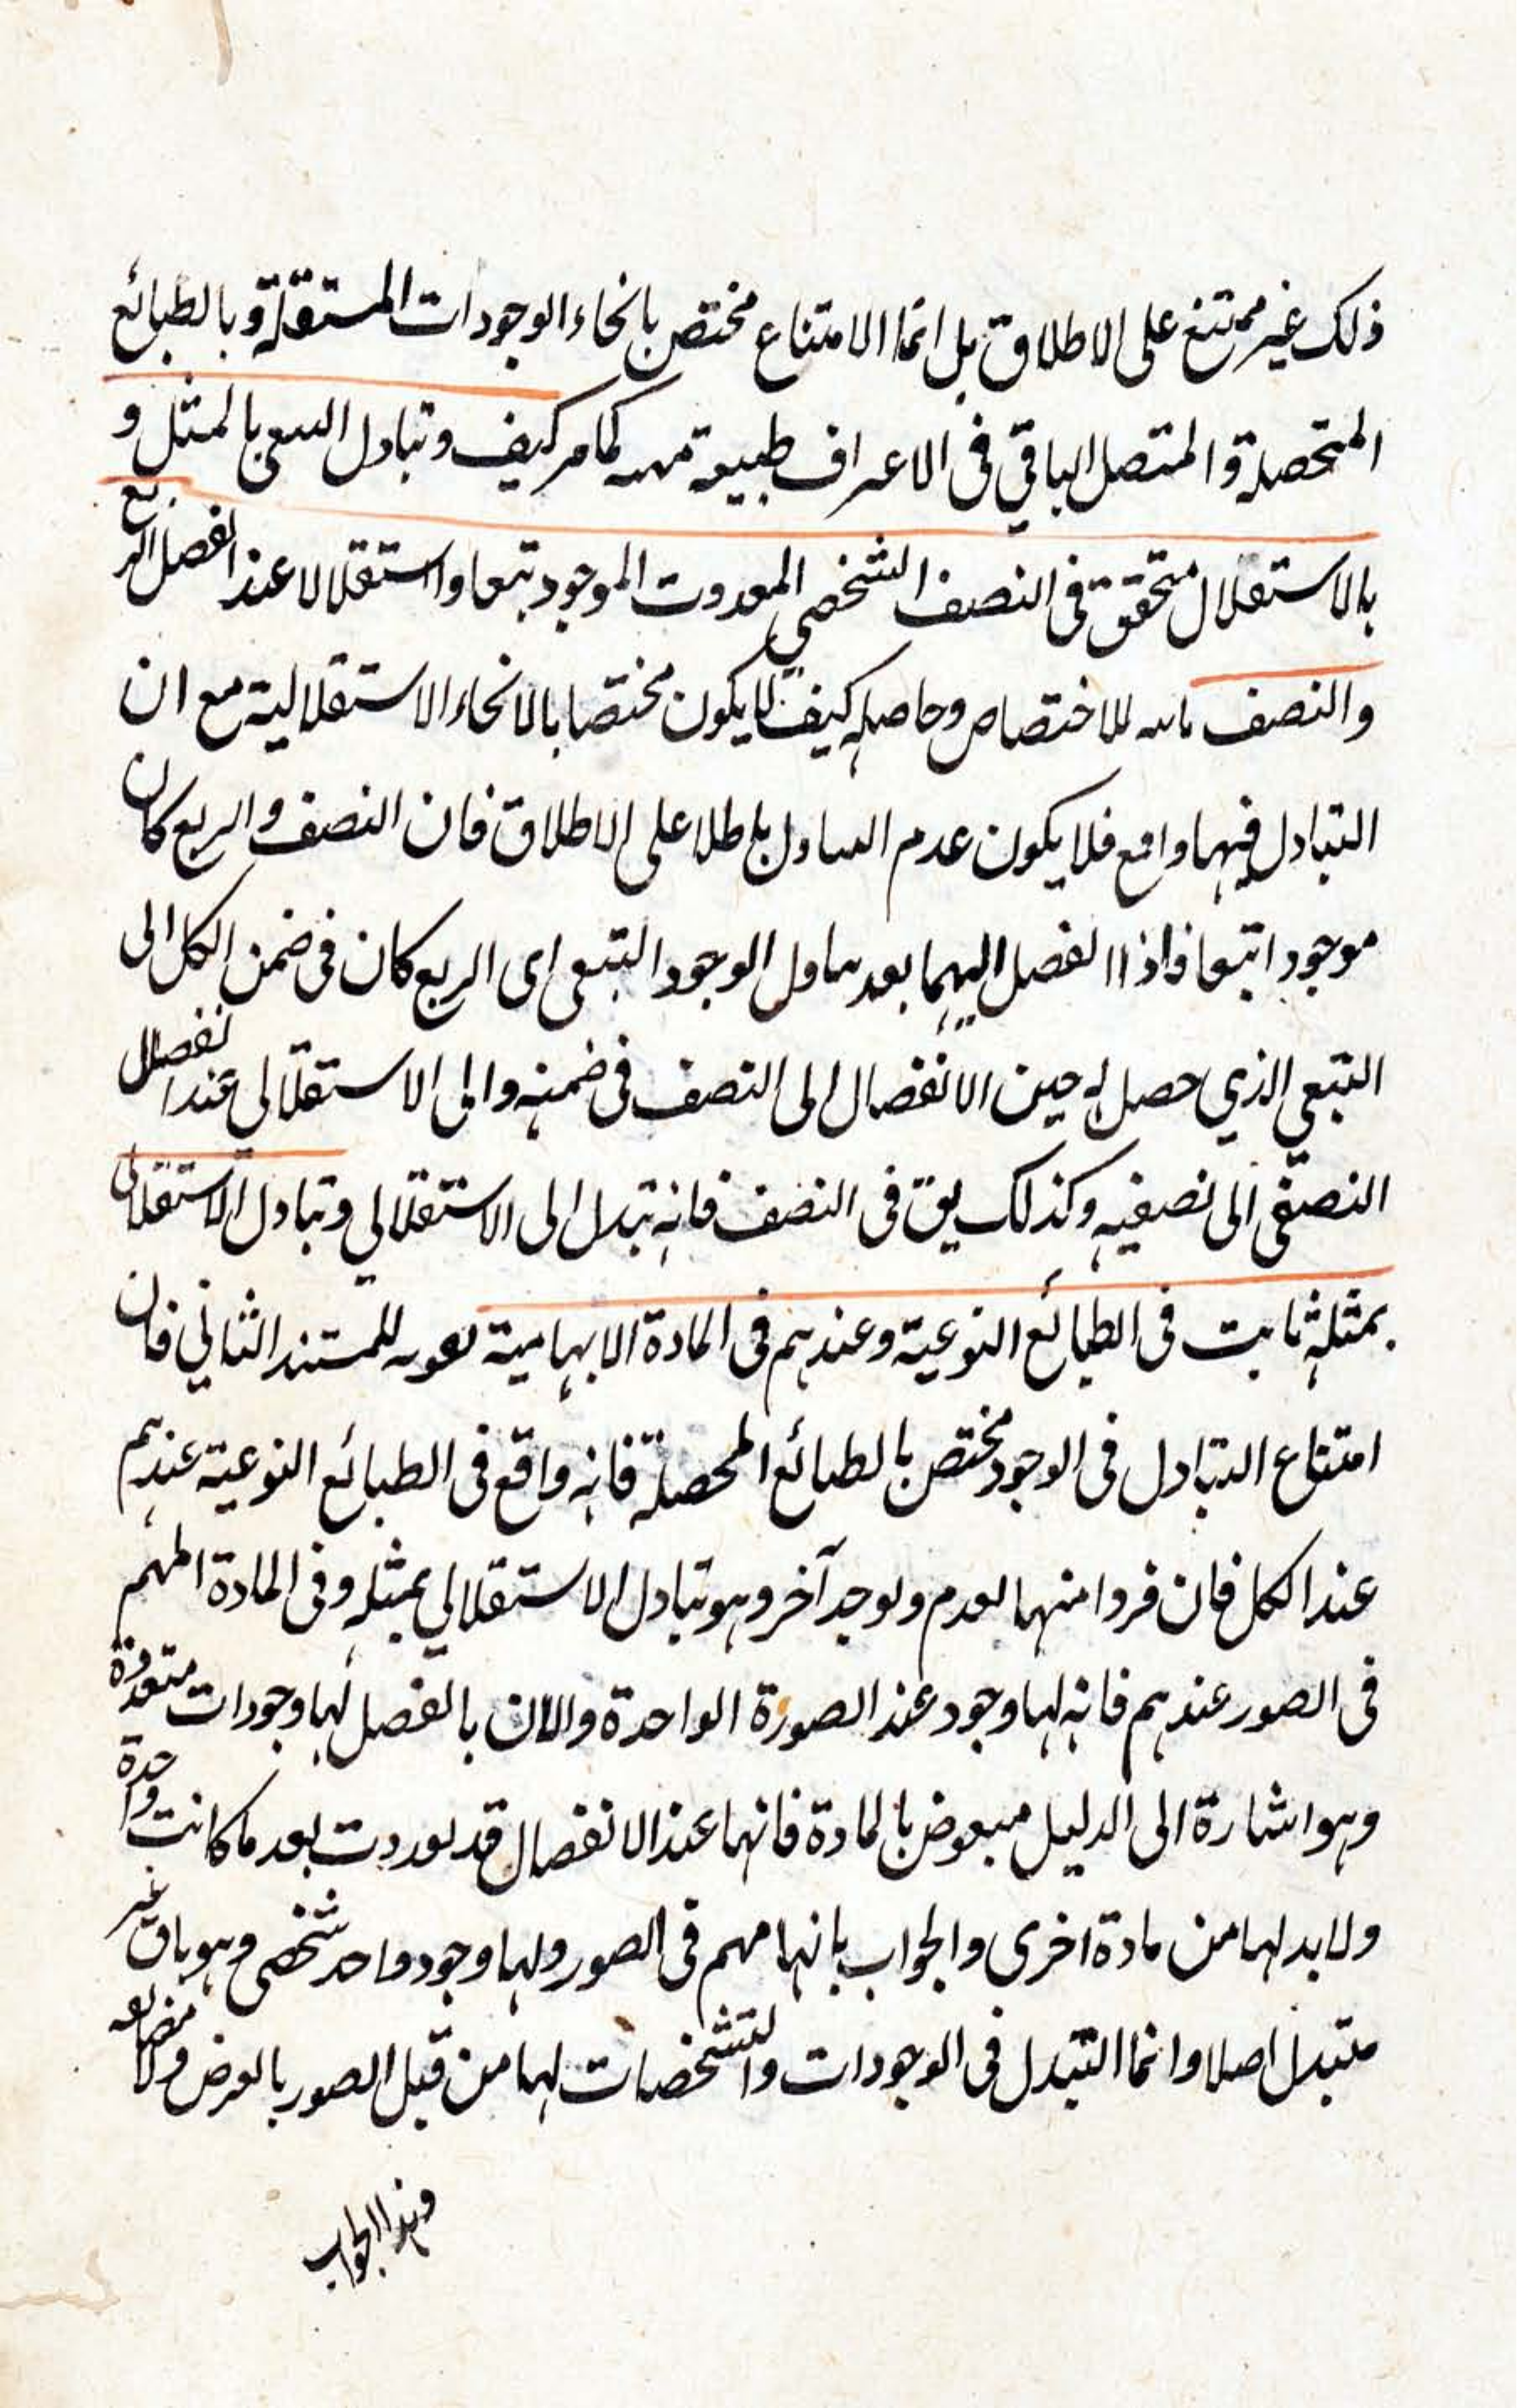 ذلك غير ممتنع على الاطلاق بل انما الامتناع مختص بانحاء الوجودات المستقلة و بالطبائع
المتحصلة و المتصل الباقي في الاعراف طبيعة كما مر كيف و تبادل التبعي بالمثل و
بالاستقلال متحقق في النصف الشخصي الموجود تبعا و استقلالا عند انفصال الربع
و النصف للاختصاص و حاصله كيف لا يكون مختصا بالانحاء الاستقلالية مع ان
التبادل فيهما واقع فلا يكون عدم التبادل باطلا على الاطلاق فان النصف و الربع كان
موجودا تبعا فاذا انفصل اليهما بعد الوجود التبعي اى الربع كان في ضمن الكل الى
التبعي الذي حصل له حين الانفصال الى النصف في ضمنه و الى الاستقلالي عند انفصال
النصفى الى نصفيه و كذلك يق في النصف فانه تبدل الى الاستقلالي و تبادل الاستقلالى
بمثله ثابت في الطبائع النوعية و عندهم في المادة الابهامية للمستند الثاني فان
امتناع التبادل في الوجود مختص بالطبائع المحصلة فانه واقع في الطبائع النوعية عندهم
عند الكل فان فردا منهما يعدم و يوجد آخر و هو تبادل الاستقلالي بمثله و في المادة المبهم
في الصور عندهم فانه لها وجود عند الصورة الواحدة و الان بالفصل لها وجودات متعددة
و هو اشارة الى الدليل بالمادة فانها عند الانفصال قد تعددت بعد ما كانت واحدة
و لا بد لها من مادة اخرى و الجواب بانها مبهم في الصور و لها وجود واحد شخصي و هو باق غير
متبدل اصلا و انما التبدل في الوجودات و التشخصات لها من قبل الصور بالعرض و لا
و هذا الجواب